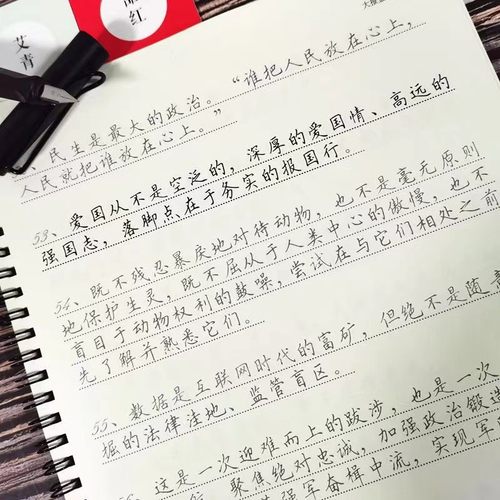 艾青
红
、民生是最大的政治。“谁把人民放在心上，
人民就把谁放在心上。”
53、爱国从不是空泛的，深厚的爱国情、高远的
强国志，落脚点在于务实的报国行。
54、既不残忍暴戾地对待动物，也不是毫无原则
地保护生灵，既不屈从于人类中心的傲慢，也不
盲目于动物权利的鼓噪，尝试在与它们相处之前
先了解并熟悉它们。
55、数据是互联网时代的富矿，但绝不是随意
掘的法律洼地、监管盲区。
这是一次迎难而上的跋涉，也是一次
聚焦绝对忠诚，加强政治锻造
强军奋楫中流，实现军